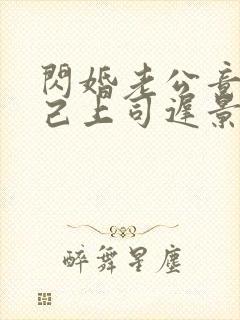 閃婚老公竟
己上司遲景
醉舞星塵